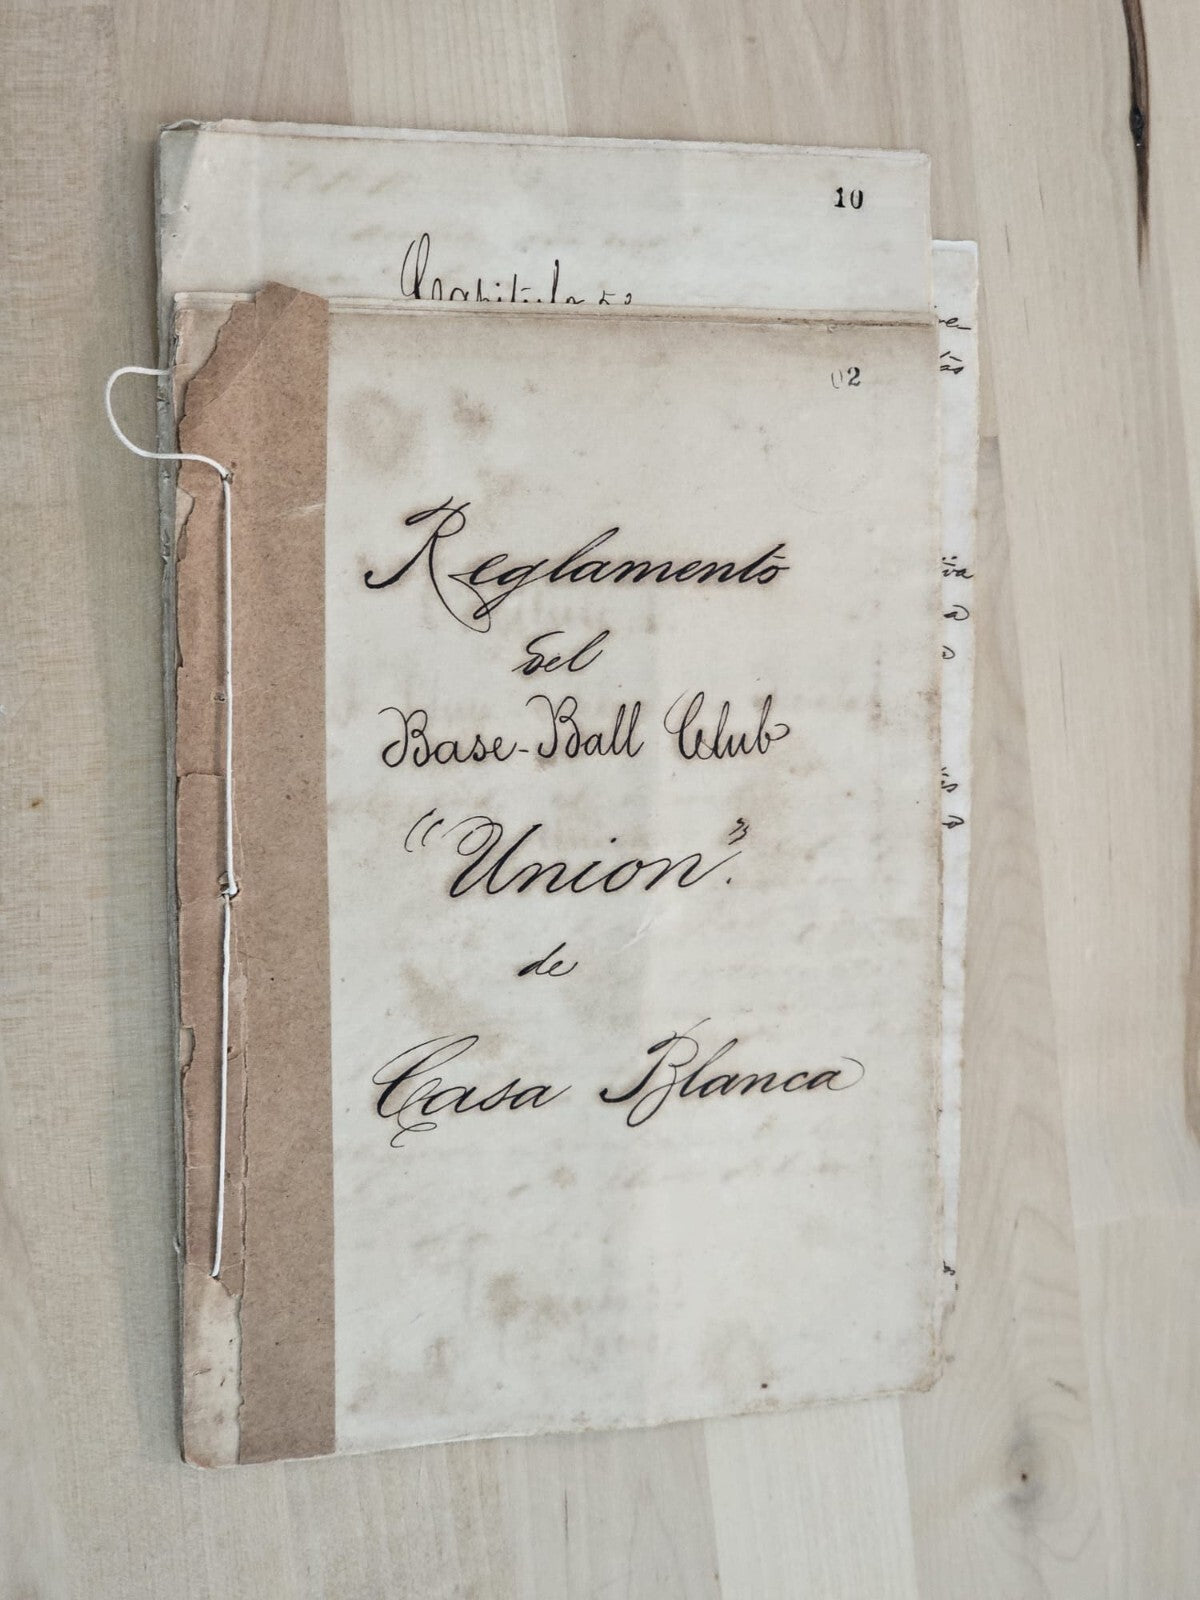 10
Capitulo 5º
02
Reglamento
del
Base-Ball Club
"Union".
de
Casa Blanca